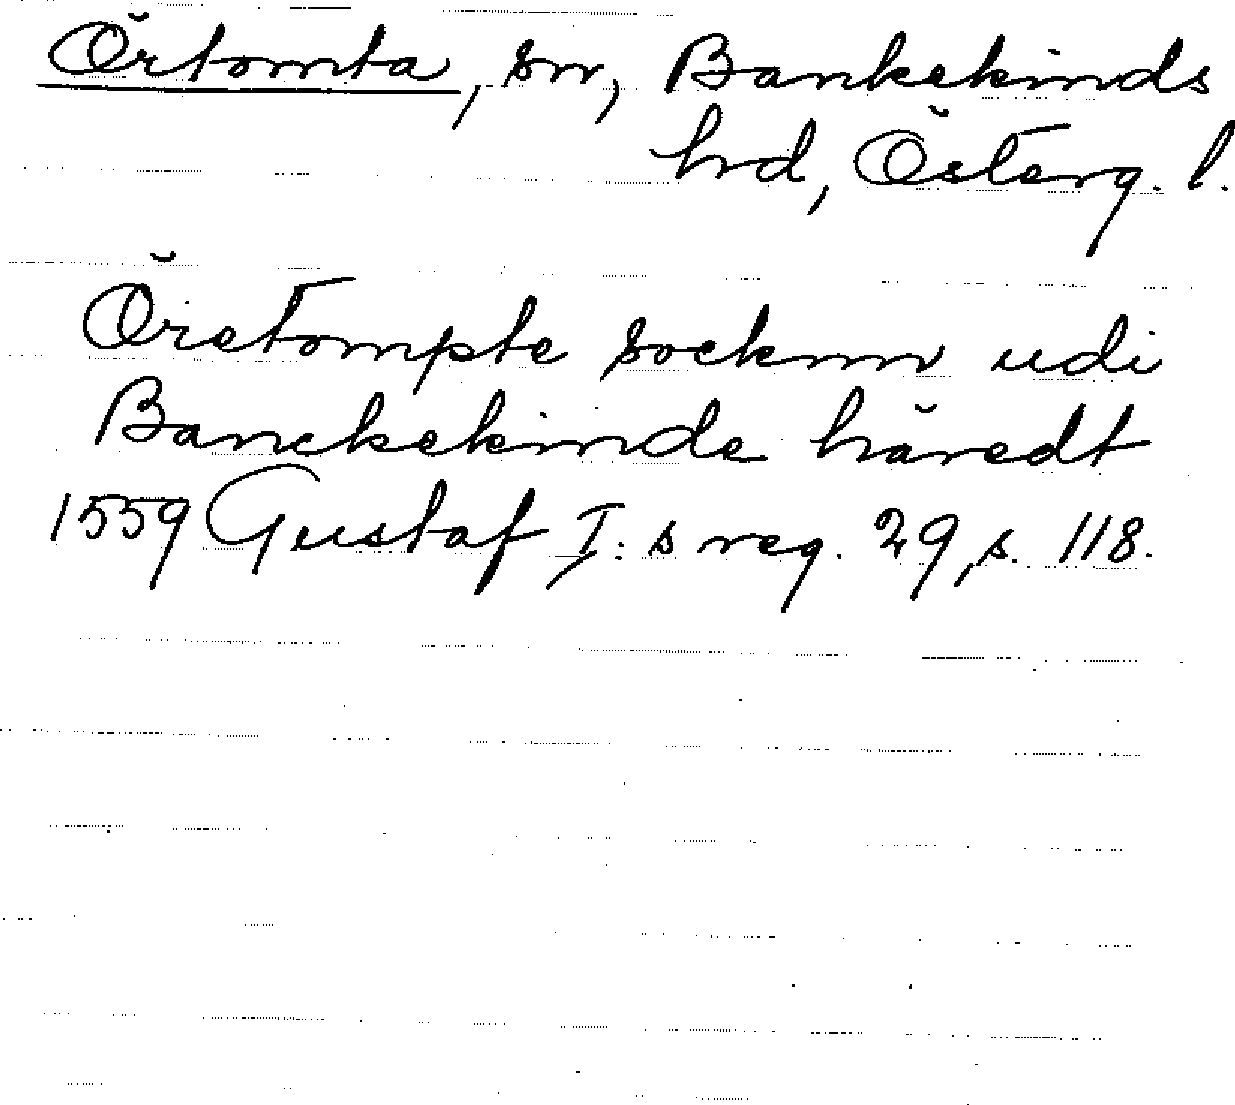 Örtomta, sn, Bankekinds
hrd, Österg. l.
Öretompte socknn udi
Banckekinde häredt
1559 Gustaf I:s reg. 29, s. 118.